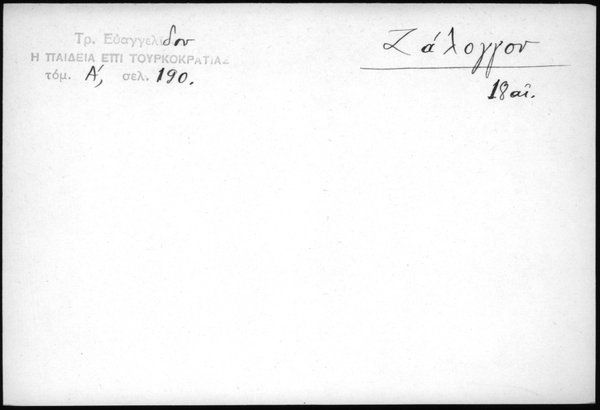 Τρ. Εὐαγγελίδου
Η ΠΑΙΔΕΙΑ ΕΠΙ ΤΟΥΡΚΟΚΡΑΤΙΑΣ
τόμ. Α', σελ. 190.
Ζάλογγον
18 αἰ.